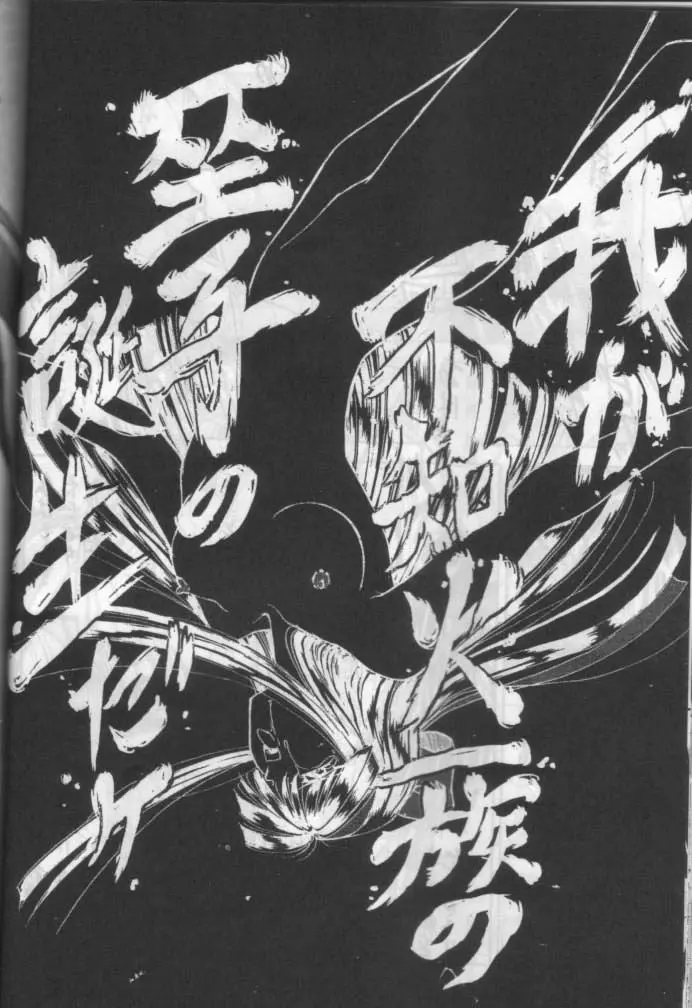 我が
不知火一族の
子の
誕生だッ